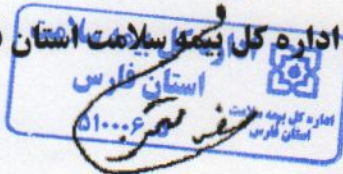 اداره کل بیمه سلامت استان
استان فارس
اداره کل بیمه سلامت
استان فارس
۵۱۰۰۰۶